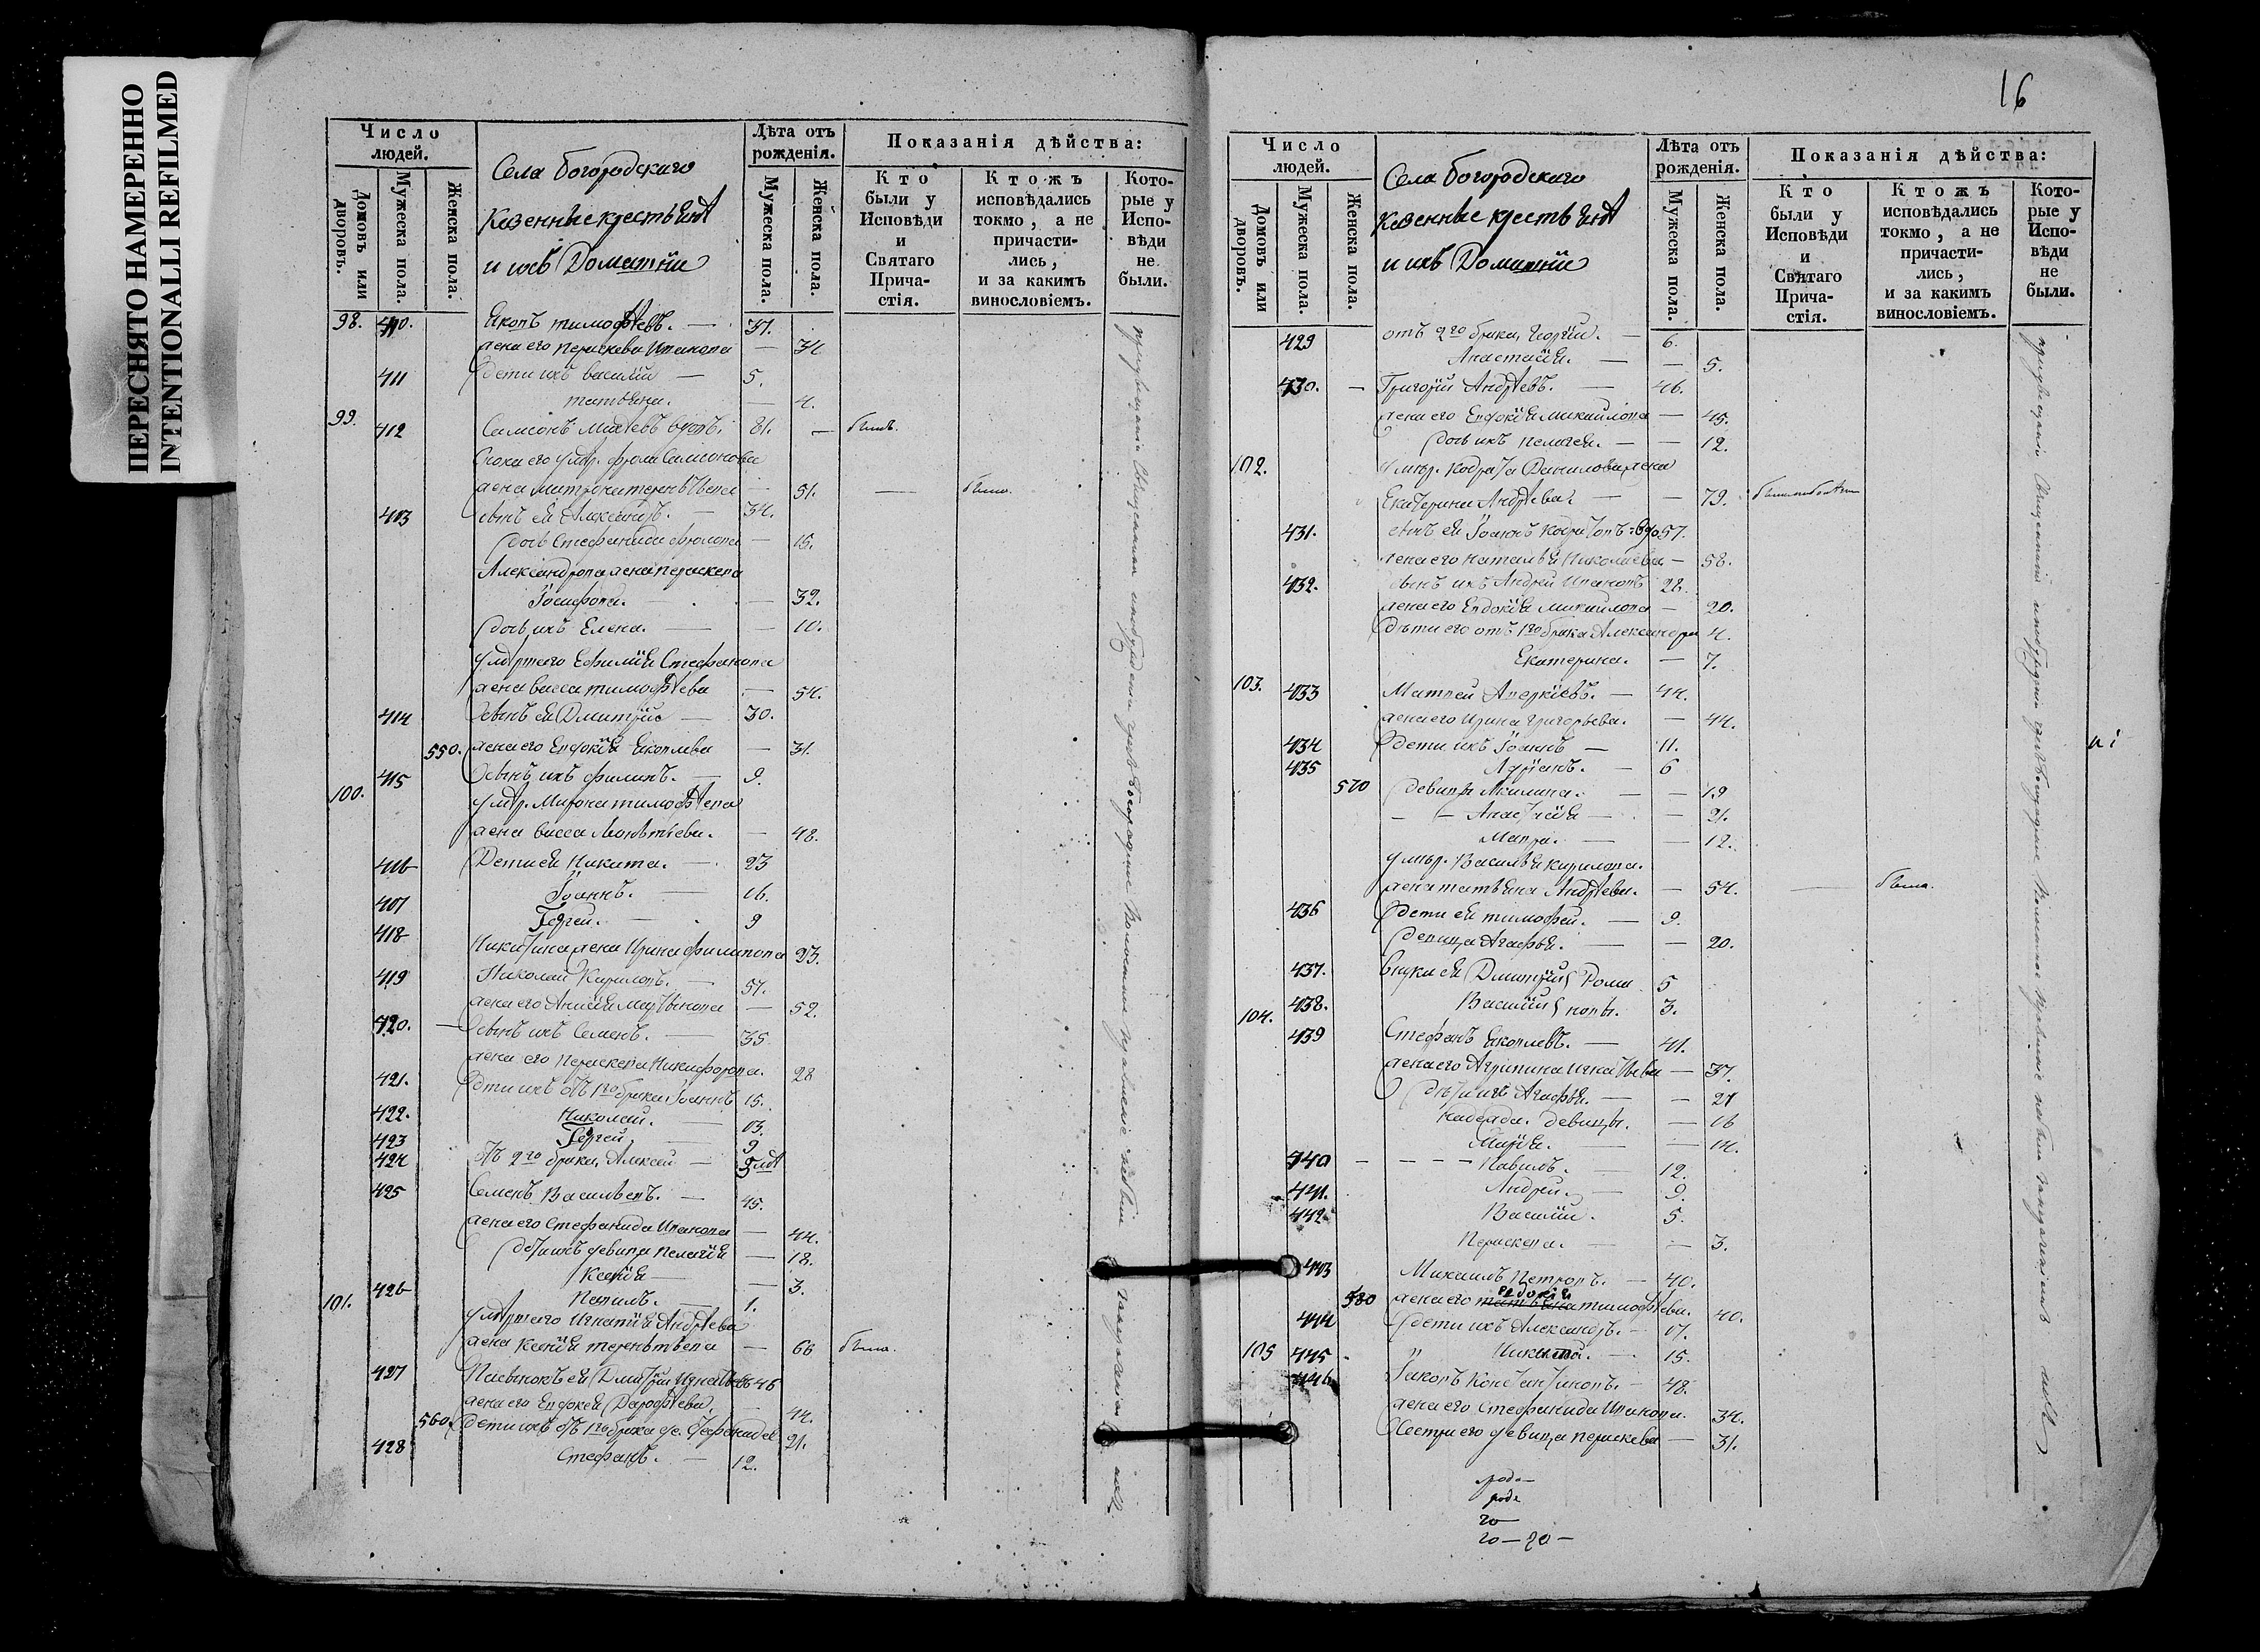 ПЕРЕСНЯТО НАМЕРЕННО
INTENTIONALLI REFILMED
Число людей.
Домовъ или дворовъ.
Мужеска пола.
Женска пола.
Села Богородскаго
Казенные крестьяня
и ихъ Домашнiи
Лѣта отъ рожденiя.
Мужеска пола.
Женска пола.
Показанiя дѣйства:
Кто были у Исповѣди и Святаго Причастiя.
Ктожъ исповѣдались токмо, а не причастились, и за какимъ винословiемъ.
Которые у Исповѣди не были.
98. 410. Яковъ тимофѣевъ. — 37.
жена его параскева Иванова — 34
411 дети ихъ василiй — 5.
татьяна. — 4.
99. 412 Самсонъ вдовъ. 81. — былъ.
Снохи его умер. фрола Самсонова
жена Матрона терентьева — 51. — была.
413 сынъ ея Александръ. — 34.
дочь Стефанида фролова — 15.
Александрова жена параскева
Iосифова. — 32.
дочь ихъ Елена. — 10.
умершаго Ефимiя Стефанова
жена васса тимофѣева — 54.
414 сынъ ея Димитрiй — 30.
550. жена его Евфокiя Яковлева — 31.
415 Сынъ ихъ филипъ. — 9.
100. умер. Мирона тимофѣева
жена васса — 48.
416 Дети ея Никита. — 23
Iоаннъ. — 16.
418 Сергей. — 9
Никитина жена Ирина филипова 23.
419 Николай Кириловъ. — 57.
жена его — 52.
420. — Сынъ ихъ Семенъ. — 35
жена его параскева Никифорова. 28
421. дети ихъ отъ 1го брака Iоаннъ 15.
422. Николай. — 13.
423 Сергей, — 9
424 отъ 2го брака, Алексей —
425 Семенъ Васильевъ. — 45.
жена его Стефанида Иванова — 44.
дети ихъ девица пелагiя — 18.
Ксенiя — 3.
426 Павилъ. — 1.
101. умершаго Игнатiя Андрѣева
жена Ксенiя терентьева — 66 была.
427 Пасынокъ ея Дмитрiй Игнатьевъ 46
жена его Евфокея Дорофѣева. 44.
560. дети ихъ отъ 1го брака де. Стефанида 21.
428 Стефанъ. — 12.
16
Число людей.
Домовъ или дворовъ.
Мужеска пола.
Женска пола.
Села Богородскаго
Казенные крестьяня
и ихъ Домашнiи
Лѣта отъ рожденiя.
Мужеска пола.
Женска пола.
Показанiя дѣйства:
Кто были у Исповѣди и Святаго Причастiя.
Ктожъ исповѣдались токмо, а не причастились, и за какимъ винословiемъ.
Которые у Исповѣди не были.
429 отъ 2го брака, Георгiй. — 6.
Анастасiя. — 5.
430. — Григорiй Андрѣевъ. — 46.
жена его Евфокiя Михаилова — 45.
дочь ихъ пелагея. — 12.
102. умер. Кодрата Данилова жена
Екатерина Андрѣева. — 79.
431. сынъ ея Iоаннъ Кодратовъ 57.
жена его наталья Николаева — 58.
432. сынъ ихъ Андрей Ивановъ 28.
жена его Евдокiя михаилова — 20.
дѣти его отъ 1го брака Александръ 4.
Екатерина. — 7.
103. 433 Матвей Аверкiевъ. — 44.
жена его Ирина Григорьева. — 44.
434 дети ихъ Iоаннъ — 11.
435 Адрiанъ. — 6
570 девицы Акилина. — 19
Анастасiя — 21.
Мавра. — 12.
умер. Василья кирилова.
жена татьяна Андрѣева. — 54. — была.
436 дети ея тимофей. — 9.
девица Агафья. — 20.
437. внуки ея Димитрiй Рома 5
438. Василiй новы. 3.
104. 439 Стефанъ Яковлевъ. — 41.
жена его Агрипина Игнатьева — 37.
дѣти ихъ Агафья. — 21
надежда. девицы. — 16
Марiя. — 14.
440 — Павилъ. — 12.
441. Андрей. — 9.
442 Василiй. — 5.
Параскева. — 3.
443 Михаилъ Петровъ. — 40.
580 жена его татьяна тимофѣева. 40.
444 дети ихъ Александръ. — 17.
105 445 Никита. — 15.
446 Iаковъ Константиновъ. — 48.
жена его Стефанида Иванова. 34.
Сестра его девица параскева — 31.